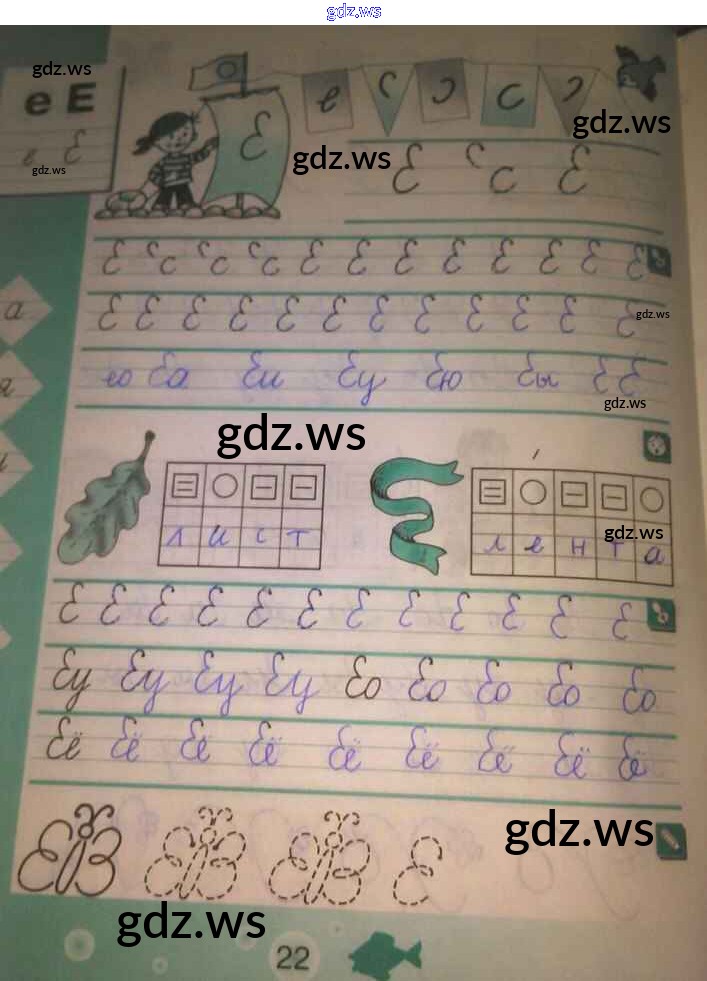 gdz.ws
gdz.ws
е Е
е Е
gdz.ws
Е
е
gdz.ws
gdz.ws
Е Е Е
Е Е Е Е Е Е Е Е Е Е Е Е
а
Е Е Е Е Е Е Е Е Е Е Е Е
gdz.ws
ео Еа Еи Еу Ею Еы Е Е
gdz.ws
gdz.ws
л и с т
л е н т а
gdz.ws
Е Е Е Е Е Е Е Е Е Е Е Е
Еу Еу Еу Еу Ео Ео Ео Ео Ео
Её Её Её Её Её Её Её Её Её
gdz.ws
gdz.ws
22